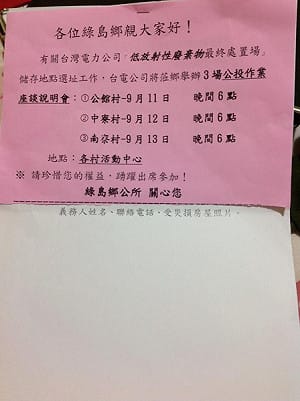 各位綠島鄉親大家好！
有關台灣電力公司「低放射性廢棄物最終處置場」
儲存地點選址工作，台電公司將莅鄉舉辦3場公投作業
座談說明會：①公館村-9月11日 晚間6點
②中寮村-9月12日 晚間6點
③南寮村-9月13日 晚間6點
地點：各村活動中心
※ 請珍惜您的權益，踴躍出席參加！
綠島鄉公所 關心您
義務人姓名、聯絡電話、受災損房屋照片。